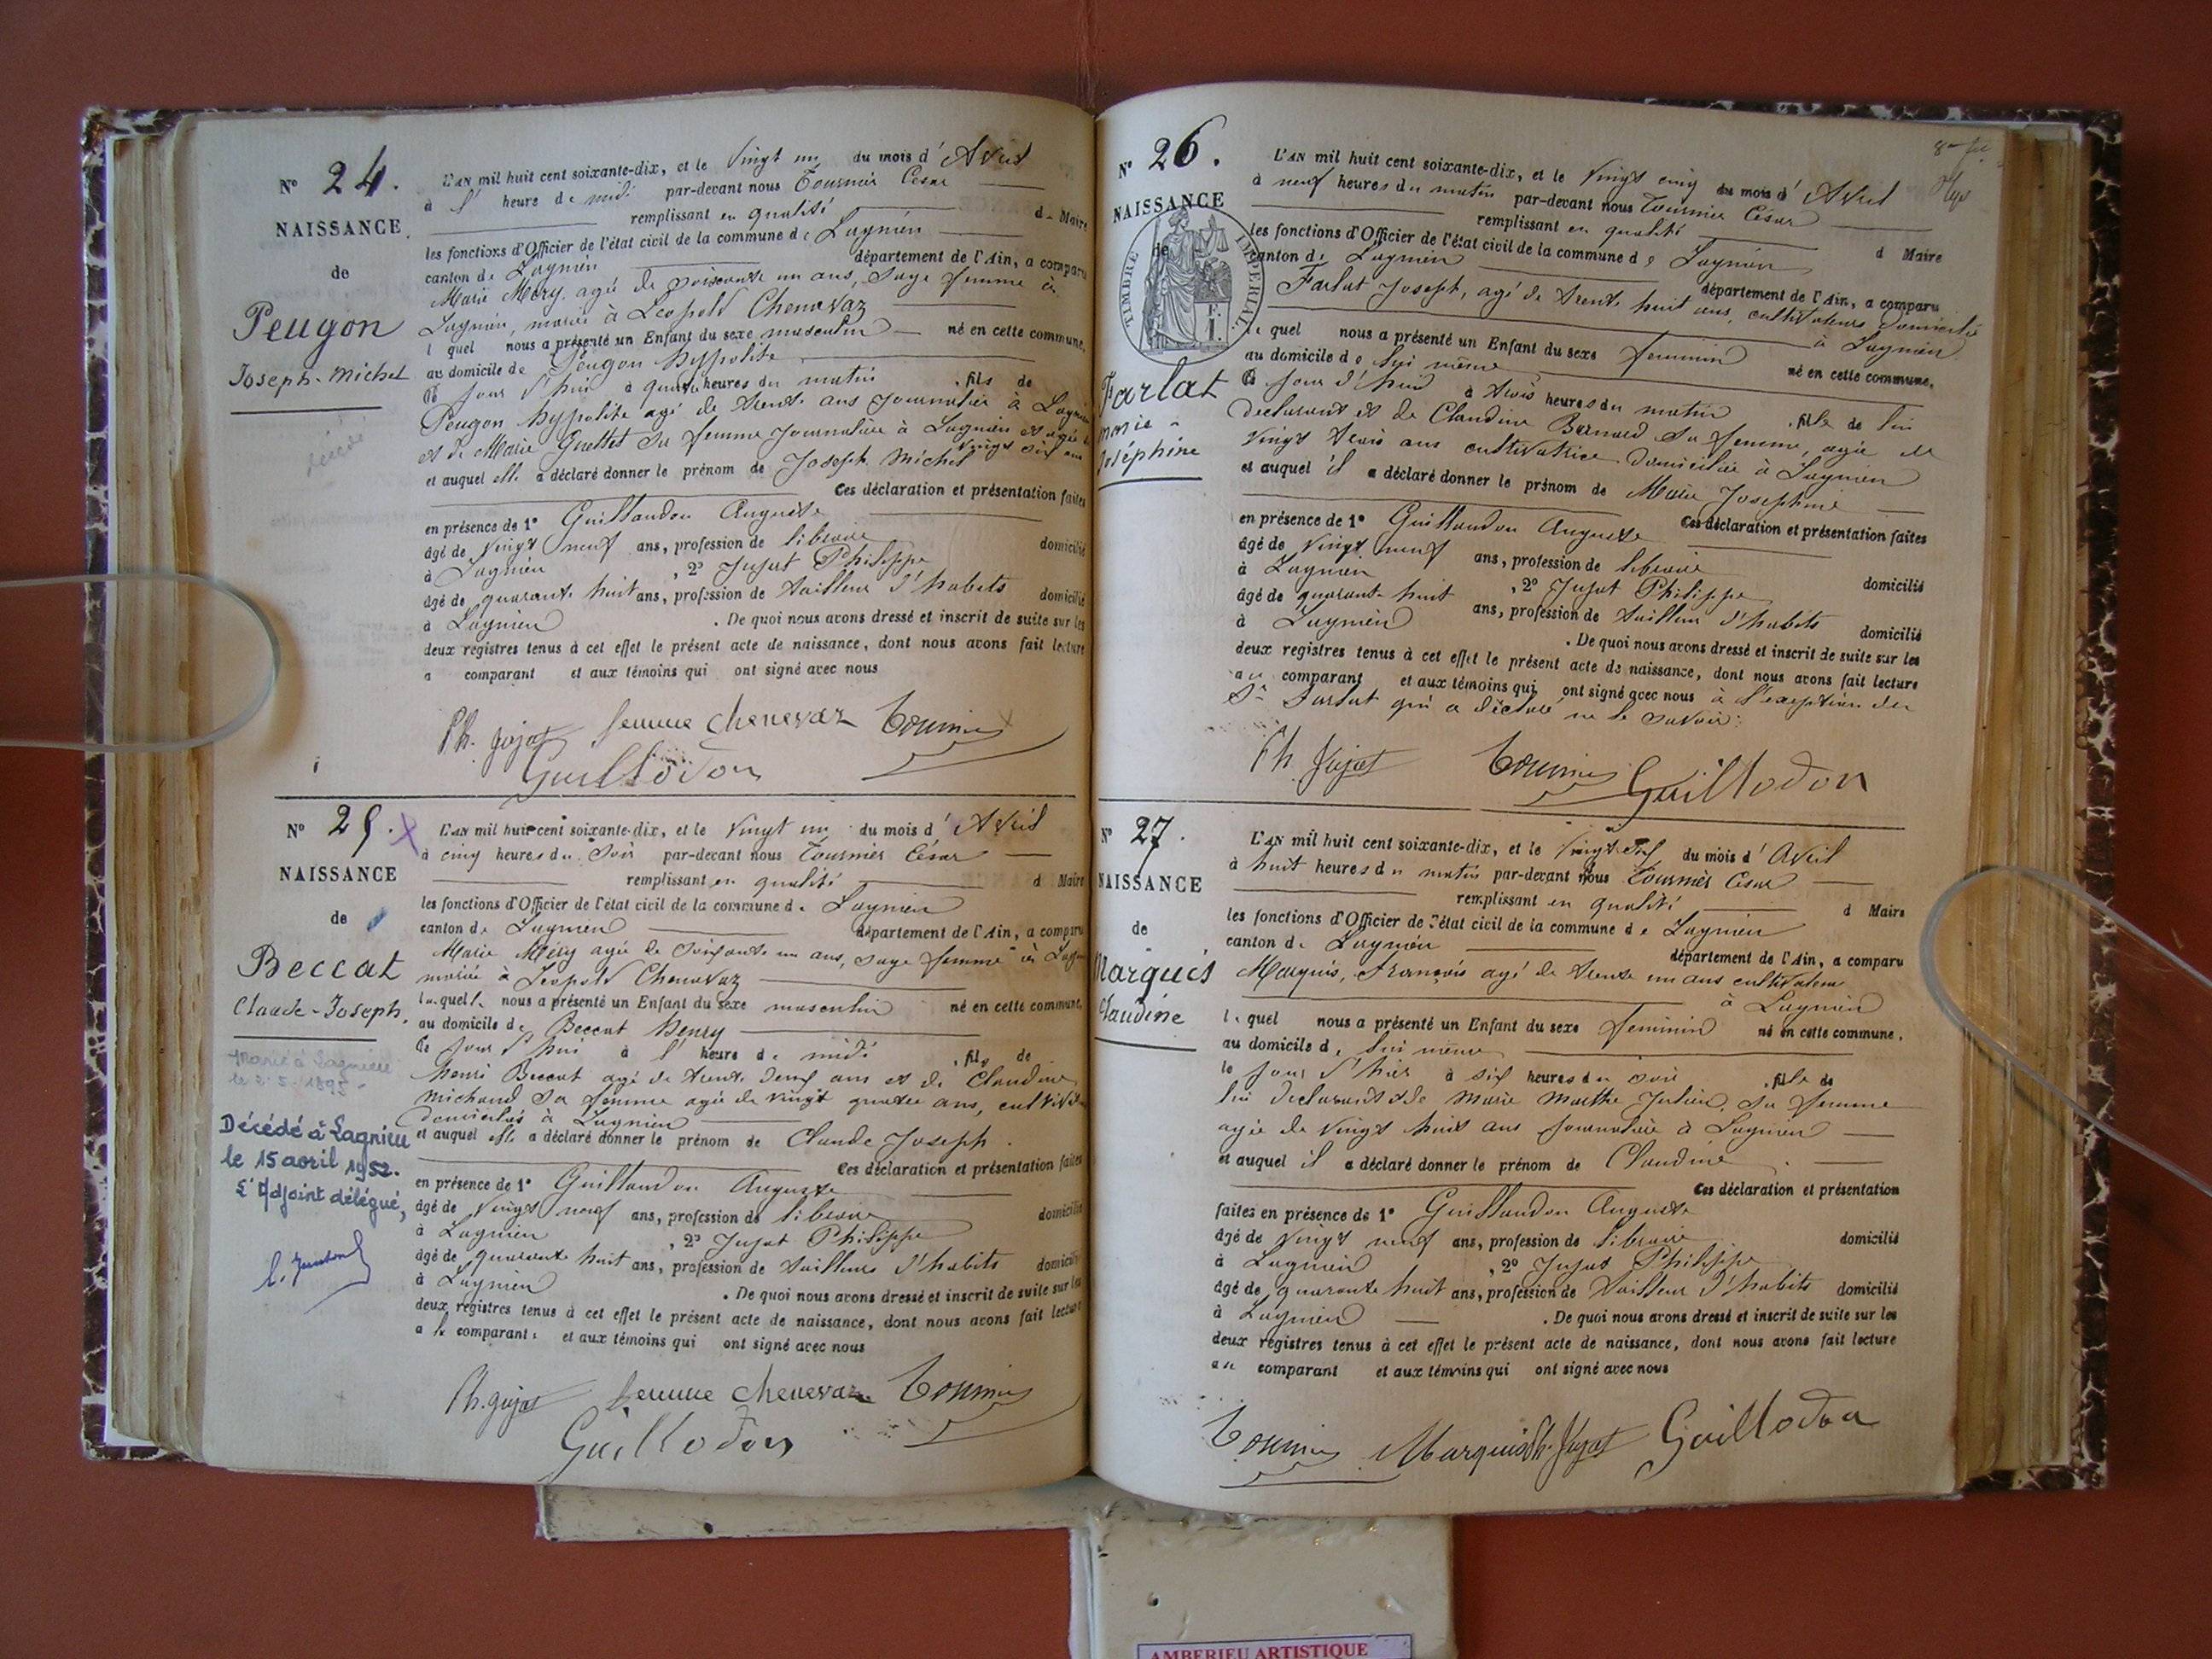 N° 24.
NAISSANCE
de
Peugon
Joseph-Michel
décédé
L'AN mil huit cent soixante-dix, et le vingt un du mois d'Avril
à l' heure de midi par-devant nous Tournier César
remplissant en qualité de Maire
les fonctions d'Officier de l'état civil de la commune de Lagnieu
canton de Lagnieu département de l'Ain, a comparu
Marie Méry, agée de soixante un ans, Sage femme à
Lagnieu, mariée à Léopold Chenavaz
l quel nous a présenté un Enfant du sexe masculin né en cette commune,
au domicile de Peugon Hyppolite
Ce jour d'hui à quatre heures du matin , fils de
Peugon Hyppolite agé de trente ans journalier à Lagnieu
et de Marie Guettet sa femme journalière à Lagnieu et agée de
vingt six ans
et auquel elle a déclaré donner le prénom de Joseph Michel
Ces déclaration et présentation faites
en présence de 1° Guillaudon Auguste
âgé de vingt neuf ans, profession de libraire domicilié
à Lagnieu , 2° Jujat Philippe
âgé de quarante huit ans, profession de tailleur d'habits domicilié
à Lagnieu . De quoi nous avons dressé et inscrit de suite sur les
deux registres tenus à cet effet le présent acte de naissance, dont nous avons fait lecture
a comparant et aux témoins qui ont signé avec nous
Ph. Jujat femme Chenevaz Tournier
Guillodon
N° 25.
NAISSANCE
de
Beccat
Claude-Joseph.
Marié à Lagnieu
Décédé à Lagnieu
le 15 avril 1952.
L'Adjoint délégué,
L'AN mil huit cent soixante-dix, et le vingt un du mois d'Avril
à cinq heures du soir par-devant nous Tournier César
remplissant en qualité d Maire
les fonctions d'Officier de l'état civil de la commune de Lagnieu
canton de Lagnieu département de l'Ain, a comparu
Marie Méry agée de soixante un ans, sage femme à Lagnieu
mariée à Léopold Chenavaz
laquelle nous a présenté un Enfant du sexe masculin né en cette commune,
au domicile de Beccat Henry
Ce jour d'hui à l' heure de midi , fils de
Henri Beccat agé de trente deux ans et de Claudine
Michaud sa femme agée de vingt quatre ans,
domiciliés à Lagnieu
et auquel elle a déclaré donner le prénom de Claude Joseph.
Ces déclaration et présentation faites
en présence de 1° Guillaudon Auguste
âgé de vingt neuf ans, profession de libraire domicilié
à Lagnieu , 2° Jujat Philippe
âgé de quarante huit ans, profession de tailleur d'habits domicilié
à Lagnieu . De quoi nous avons dressé et inscrit de suite sur les
deux registres tenus à cet effet le présent acte de naissance, dont nous avons fait lecture
a la comparante et aux témoins qui ont signé avec nous
Ph. Jujat femme Chenevaz Tournier
Guillodon
N° 26.
NAISSANCE
de
TIMBRE IMPERIAL
F. 1.
Farlat
Marie-
Joséphine
L'AN mil huit cent soixante-dix, et le vingt cinq du mois d'Avril
à neuf heures du matin par-devant nous Tournier César
remplissant en qualité d Maire
les fonctions d'Officier de l'état civil de la commune de Lagnieu
canton de Lagnieu département de l'Ain, a comparu
Farlat Joseph, agé de trente huit ans, cultivateur domicilié
à Lagnieu
le quel nous a présenté un Enfant du sexe feminin né en cette commune,
au domicile de lui même
Ce jour d'hui à trois heures du matin , fille de lui
declarant et de Claudine Bernard sa femme, agée de
vingt trois ans cultivatrice domiciliée à Lagnieu
et auquel il a déclaré donner le prénom de Marie Josephine
Ces déclaration et présentation faites
en présence de 1° Guillaudon Auguste
âgé de vingt neuf ans, profession de libraire domicilié
à Lagnieu , 2° Jujat Philippe
âgé de quarante huit ans, profession de tailleur d'habits domicilié
à Lagnieu . De quoi nous avons dressé et inscrit de suite sur les
deux registres tenus à cet effet le présent acte de naissance, dont nous avons fait lecture
au comparant et aux témoins qui ont signé avec nous à l'exception du
Sr Farlat qui a déclaré ne le savoir.
Ph. Jujat Tournier Guillodon
N° 27.
NAISSANCE
de
Marquis
Claudine
L'AN mil huit cent soixante-dix, et le vingt sept du mois d'Avril
à huit heures du matin par-devant nous Tournier César
remplissant en qualité d Maire
les fonctions d'Officier de l'état civil de la commune de Lagnieu
canton de Lagnieu département de l'Ain, a comparu
Marquis, François agé de trente un ans cultivateur
à Lagnieu
le quel nous a présenté un Enfant du sexe feminin né en cette commune,
au domicile de lui même
le jour d'hier à six heures du soir , fille de
lui declarant et de Marie Marthe Julien, sa femme
agée de vingt huit ans journalière à Lagnieu
et auquel il a déclaré donner le prénom de Claudine
Ces déclaration et présentation
faites en présence de 1° Guillaudon Auguste
âgé de vingt neuf ans, profession de libraire domicilié
à Lagnieu , 2° Jujat Philippe
âgé de quarante huit ans, profession de tailleur d'habits domicilié
à Lagnieu . De quoi nous avons dressé et inscrit de suite sur les
deux registres tenus à cet effet le présent acte de naissance, dont nous avons fait lecture
au comparant et aux témoins qui ont signé avec nous
Tournier Marquis Ph. Jujat Guillodon
AMBERIEU ARTISTIQUE